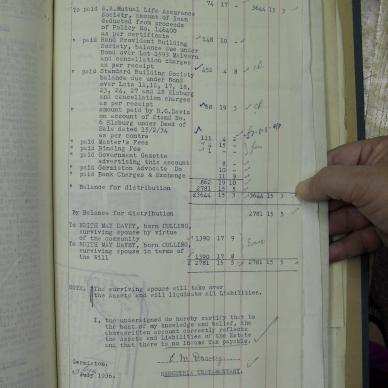 74 17 - 3644 15 3
To paid S.A. Mutual Life Assurance
Society, amount of loan
deducted from proceeds
of Policy No. 146400
as per certificate
" paid Rand Provident Building
Society, balance due under
Bond over Lot
and cancellation charges
as per receipt
" paid Standard Building Society
balance due under Bond
over Lots 11, 15, 17, 18,
23, 24, 27 and 28 Elsburg
and cancellation charges
as per receipt
" amount paid by B.G. Davis
on account of Stand No.
6 Elsburg under Deed of
Sale dated 15/2/34
as per contra
" paid Master's Fees
" paid Binding Fee
" paid Government Gazette
advertising this account
" paid Germiston Advocate Do
" paid Bank Charges & Exchange
862 19 10
" Balance for distribution 2781 15 5
£3644 15 3 £3644 15 3
By Balance for distribution 2781 15 5
To EDITH MAY DAVEY, born CULLING,
surviving spouse by virtue
of the community 1390 17 9
To EDITH MAY DAVEY, born CULLING,
surviving spouse in terms of
the Will 1390 17 8
£ 2781 15 5 2781 15 5
NOTE. The surviving spouse will take over
the Assets and will liquidate all Liabilities.
I, the undersigned do hereby certify that to
the best of my knowledge and belief, the
abovewritten account correctly reflects
the Assets and Liabilities of the Estate
and that there is no income tax payable.
Germiston.
July 1936.
EXECUTRIX TESTAMENTARY.